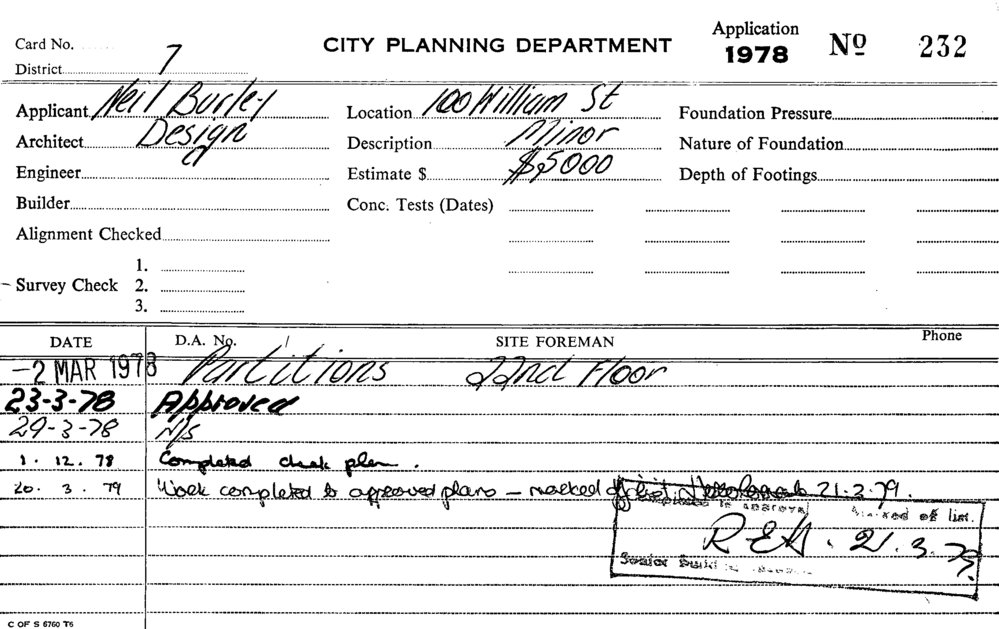 Card No. Application
CITY PLANNING DEPARTMENT 1978 No 232
District 7
Applicant Neil Burley Location 100 William St Foundation Pressure
Architect Design Description Minor Nature of Foundation
Engineer Estimate $ $5000 Depth of Footings
Builder Conc. Tests (Dates)
Alignment Checked
1.
Survey Check 2.
3.
DATE D.A. No. / SITE FOREMAN Phone
-2 MAR 1978 Partitions 22nd Floor
23-3-78 Approved
29-3-78 N/S
1. 12. 78 Completed check plan.
20. 3. 79 Work completed to approved plans – marked off list 21.3.79.
marked off list.
21.3.79
Senior Build
C OF S 6760 T6